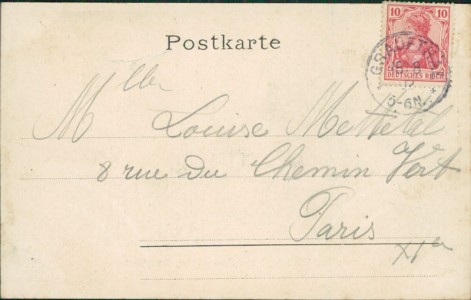 Postkarte
10 10
DEUTSCHES REICH
5-6N.
Mlle
Mlle Louise Mettetal
8 rue du Chemin Vert
Paris
XIe